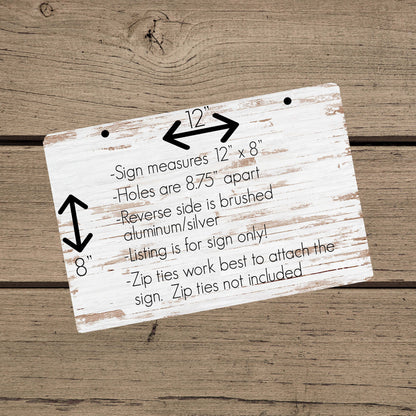 12"
-Sign measures 12" x 8"
-Holes are 8.75" apart
-Reverse side is brushed
aluminum/silver
-Listing is for sign only!
-Zip ties work best to attach the
sign. Zip ties not included
8"